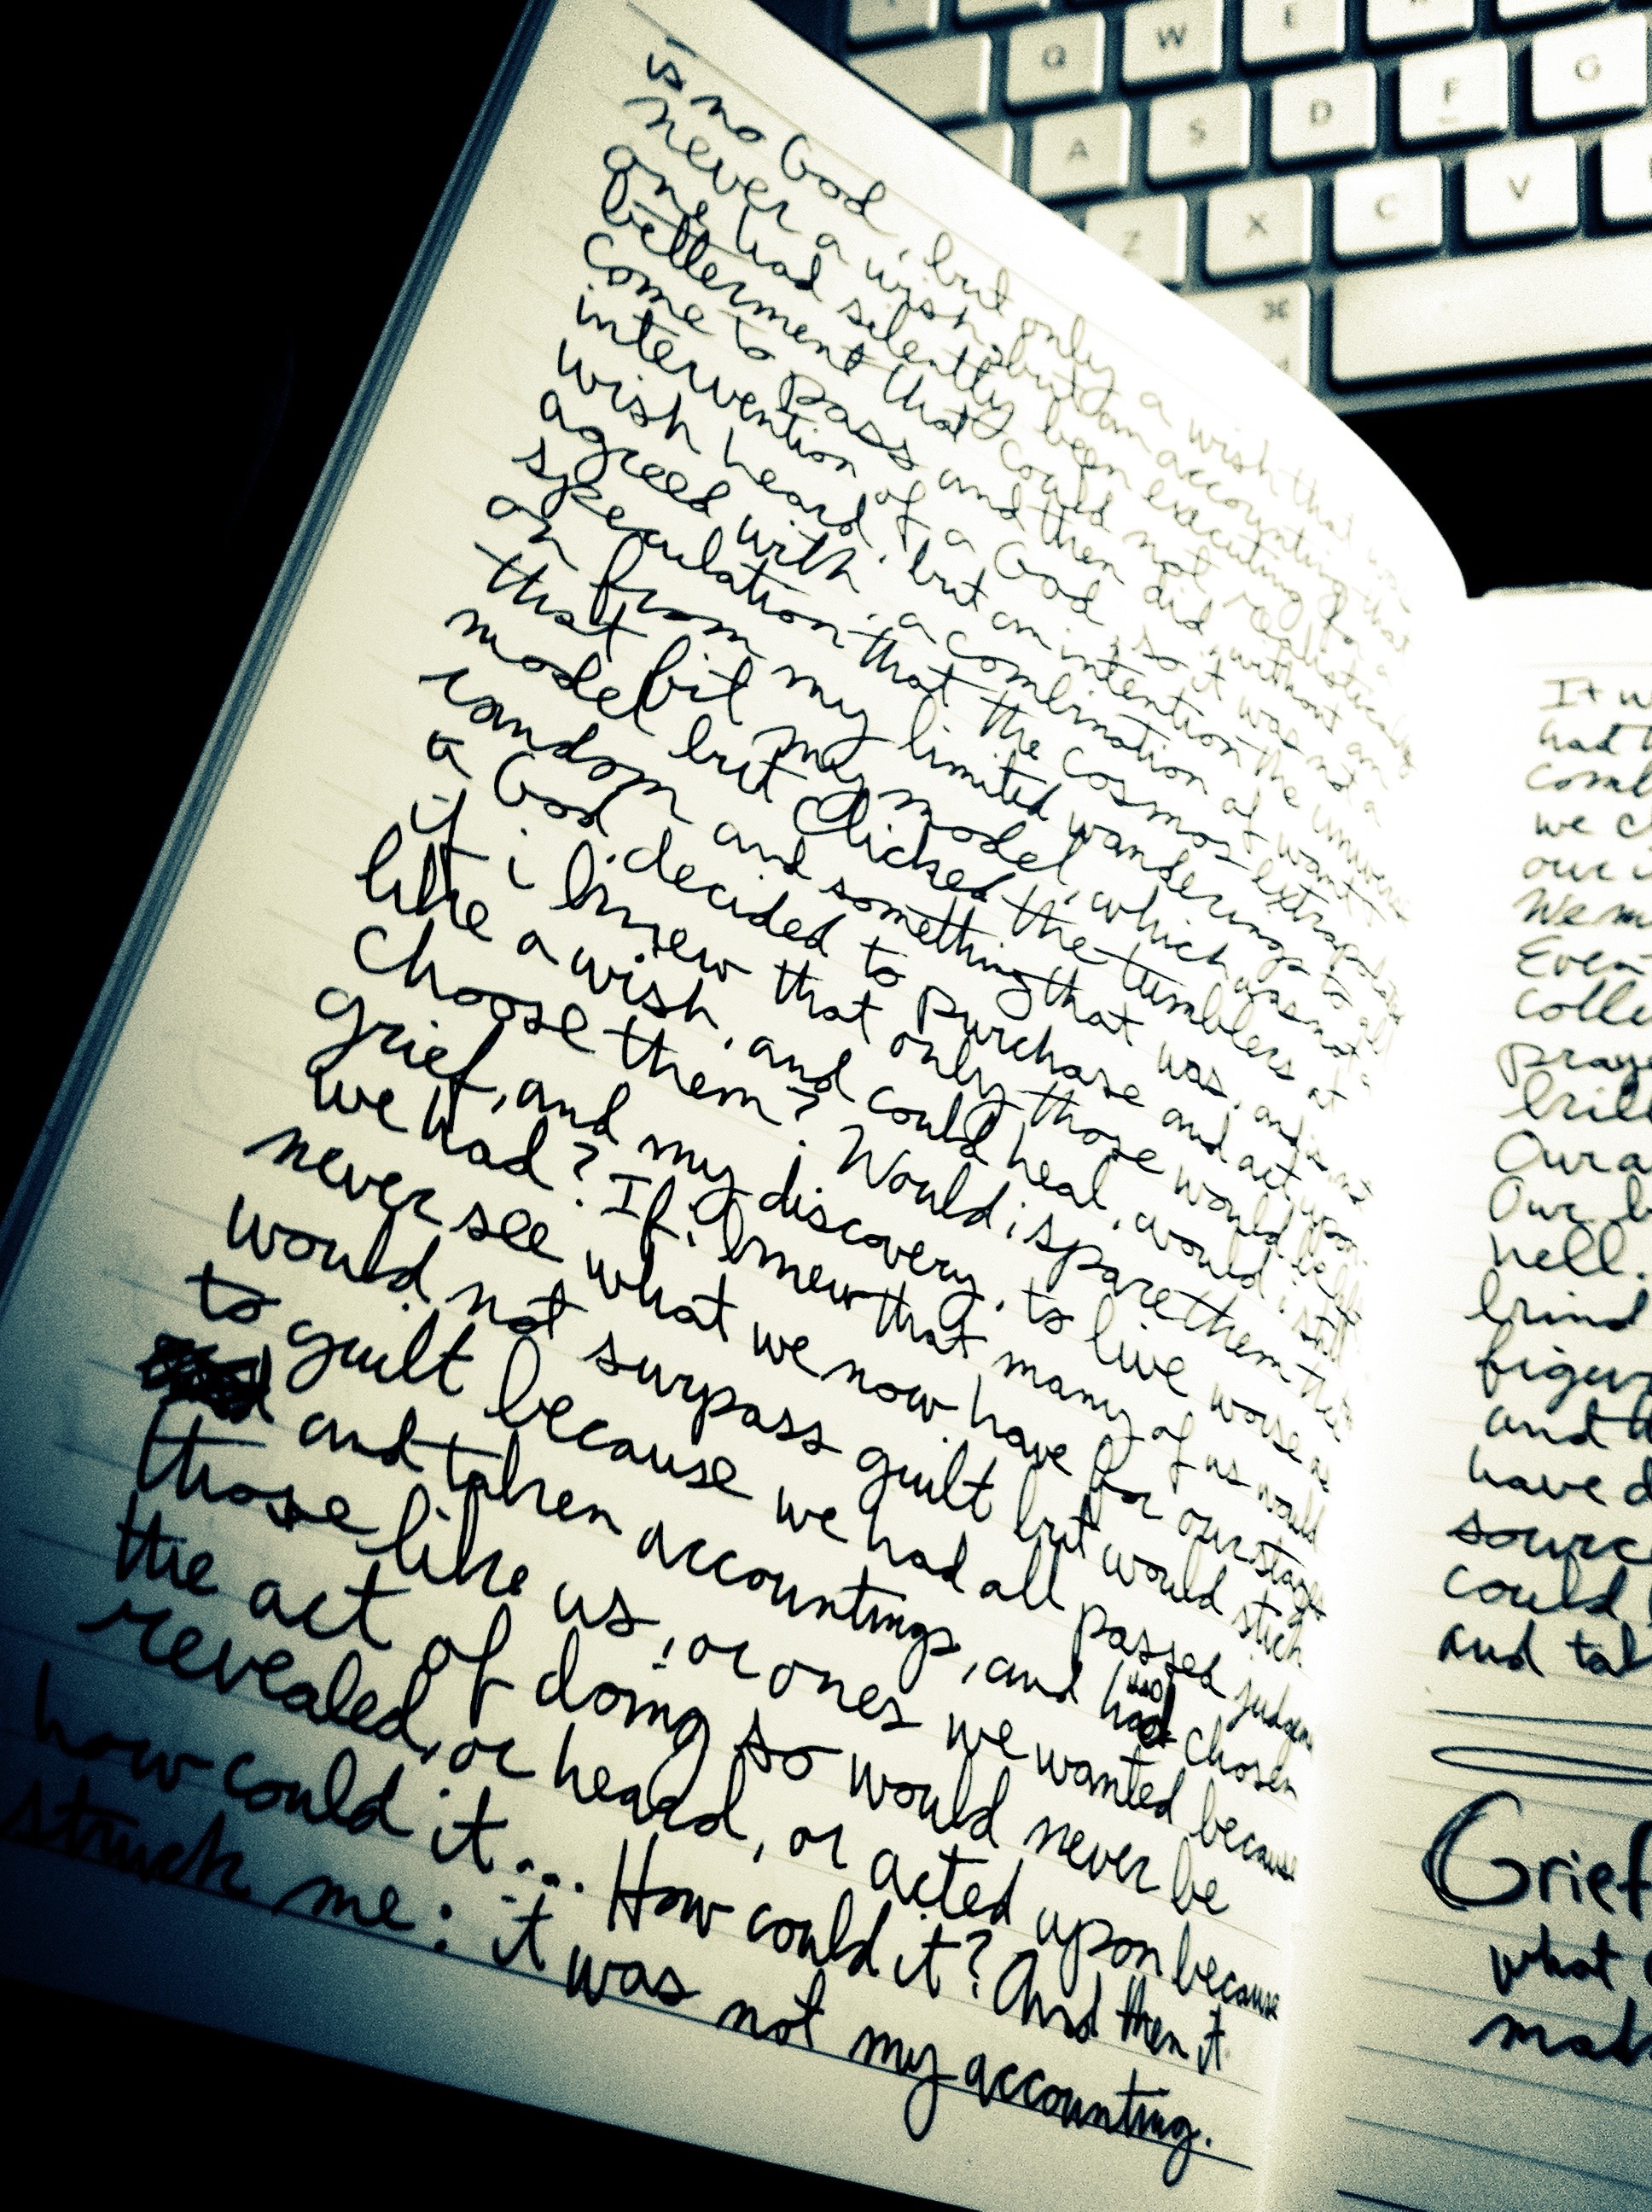 Q W E
A S D F G
Z X C V
⌘
is no God, but only a wish that
never a wish, but an accounting that
one had silently been executing for a
betterment that could not realistically
come to pass and then did, without an
intervention of a God, so it was not a
wish heard, but an intention the universe
agreed with, a combination of want,
speculation that the cosmos extrapolates
on from my limited wanderings to
that bit my model, which was not a
model but clicked the tumblers at
random and something that was, and isn't
a God, decided to purchase and act upon.
if i knew that only those would be
like a wish, and could heal, would i still
choose them? Would i spare them their
grief, and my discovery, to live worse as
we had? If i knew that many of us would
never see what we now have for our stages
would not surpass guilt but would stick
to guilt because we had all passed
and taken accountings, and had chosen
those like us, or ones we wanted because
the act of doing so would never be
revealed, or heard, or acted upon because
how could it... How could it? And then it
struck me: it was not my accounting.
It
had
we
our
We
Even
colle
pray
Our
Our
hell.
figur
and
have
sourc
could
and tal
Grief
what
mak